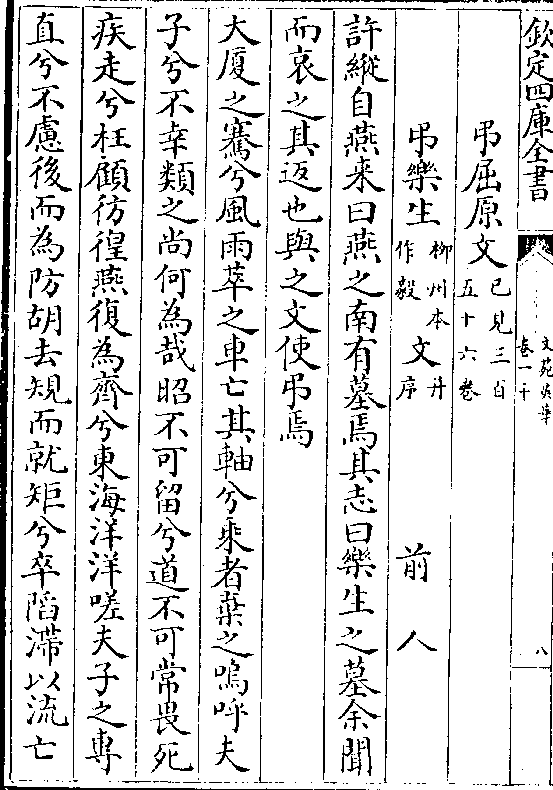 欽定四庫全書
文苑英華
卷一千
八
弔屈原文已見三百五十六卷
弔樂生柳州本作毅文并序 前人
許縱自燕来曰燕之南有墓焉其志曰樂生之墓余聞
而哀之其返也與之文使弔焉
大厦之騫兮風雨萃之車亡其軸兮乘者棄之嗚呼夫
子兮不幸類之尚何為哉昭不可留兮道不可常畏死
疾走兮枉顧彷徨燕復為齊兮東海洋洋嗟夫子之專
直兮不慮後而為防胡去規而就矩兮卒陷滯以流亡